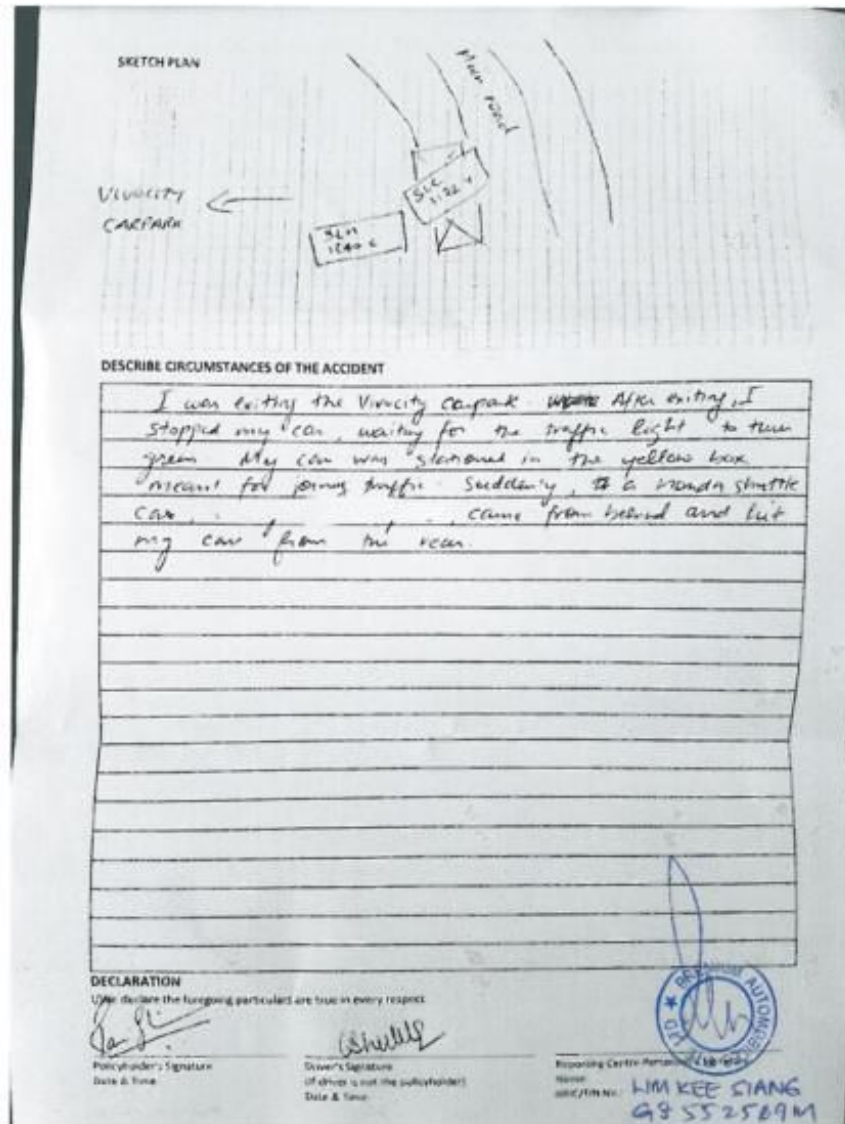 SKETCH PLAN
Main road
VIVOCITY
CARPARK
SLC
1122 Y
SLM
1840 C
DESCRIBE CIRCUMSTANCES OF THE ACCIDENT
I was exiting the Vivocity carpark. After exiting, I
stopped my car, waiting for the traffic light to turn
green. My car was stationed in the yellow box
meant for joining traffic. Suddenly, a Honda shuttle
car, came from behind and hit
my car from the rear.
DECLARATION
I/We declare the foregoing particulars are true in every respect
Policyholder's Signature
Date & Time
Driver's Signature
(if driver is not the policyholder)
Date & Time
Reporting Centre Personnel's
Name
NRIC/FIN No.
LIM KEE SIANG
G8552589M
AUTOMOBILE
LTD